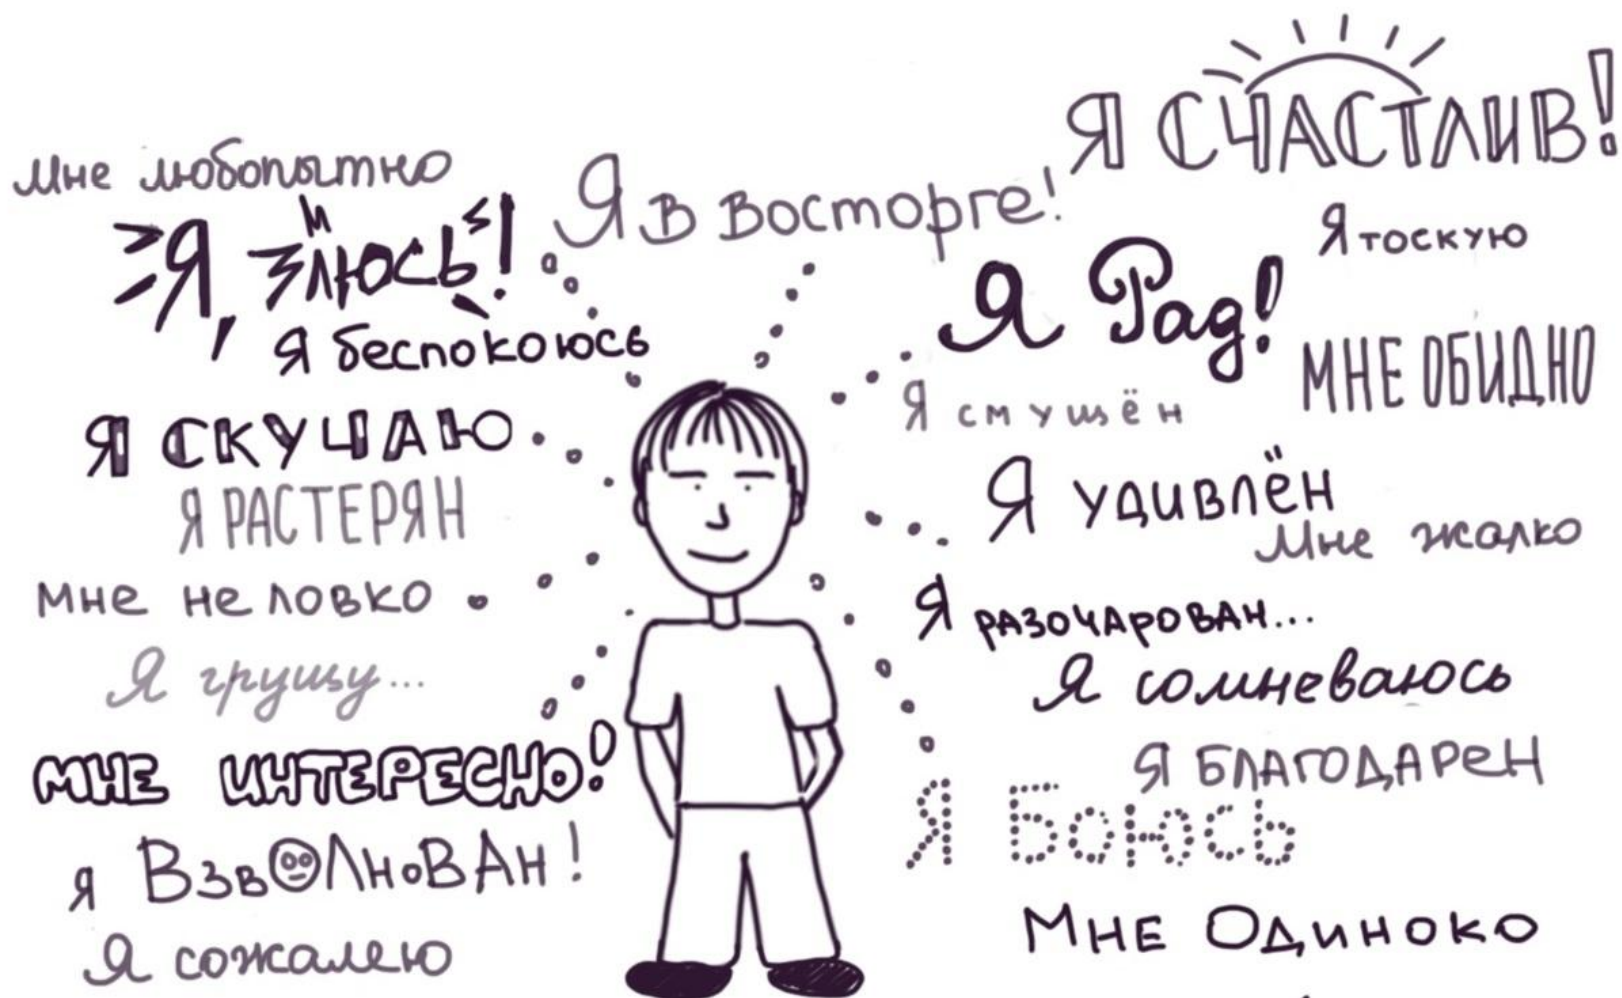 Мне любопытно
Я злюсь!
Я беспокоюсь
Я СКУЧАЮ
Я РАСТЕРЯН
мне неловко
Я грущу...
МНЕ ИНТЕРЕСНО!
я ВзвОлноВАн!
Я сожалею
Я в восторге!
Я СЧАСТЛИВ!
Я тоскую
Я Рад!
МНЕ ОБИДНО
Я смущён
Я удивлён
Мне жалко
Я РАЗОЧАРОВАН...
Я сомневаюсь
Я БЛАГОДАРЕН
Я Боюсь
МНЕ ОДИНОКО